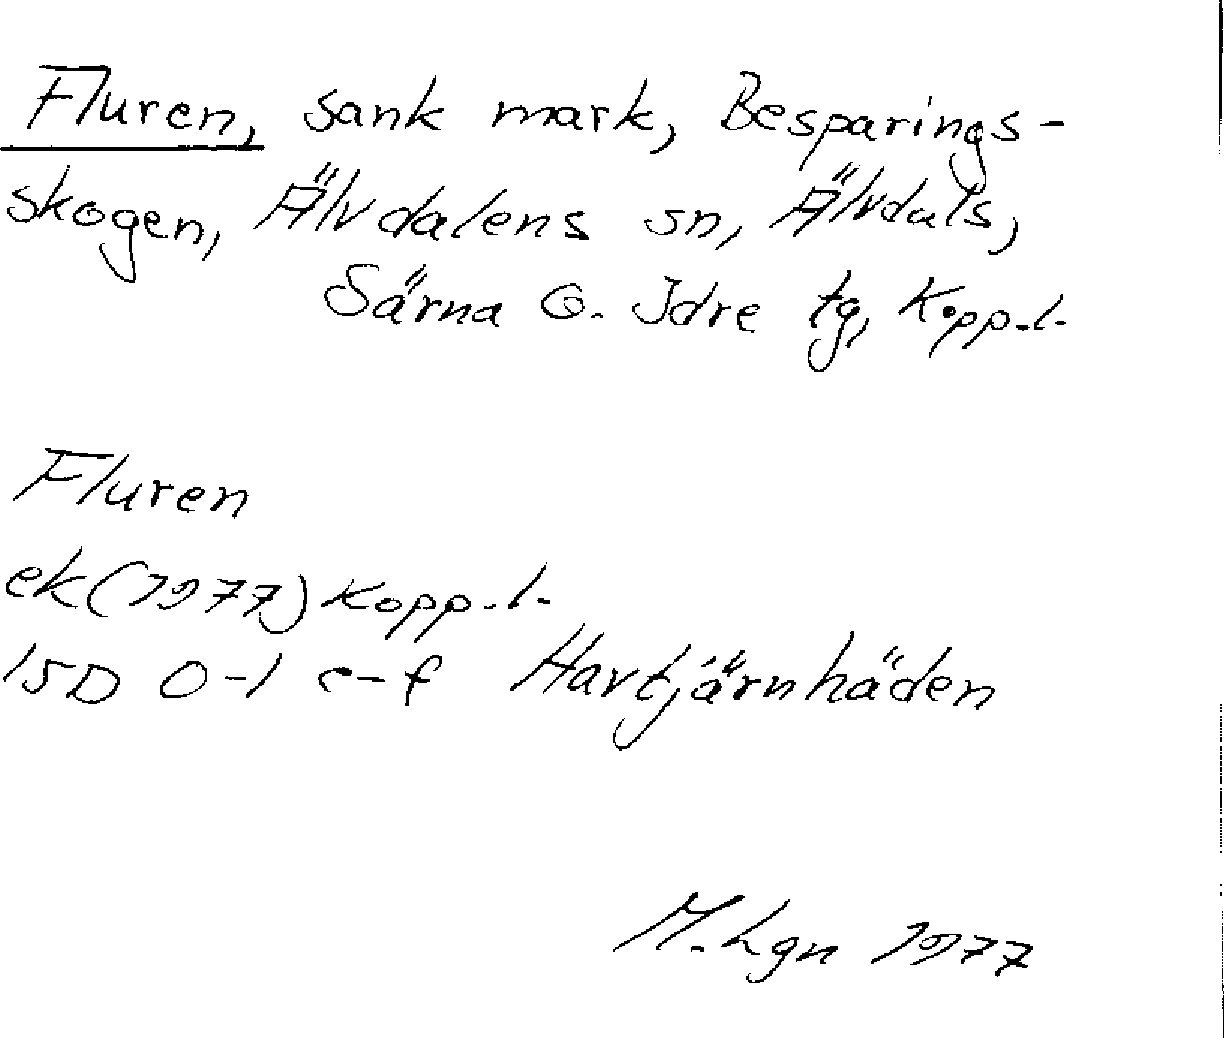 Fluren, sank mark, Besparings-
skogen, Älvdalens sn, Älvdals,
Särna o. Idre tg, Kopp.l.
Fluren
ek(1977) Kopp.l.
15D 0-1 c-f Havtjärnhäden
M.Lgn 1977